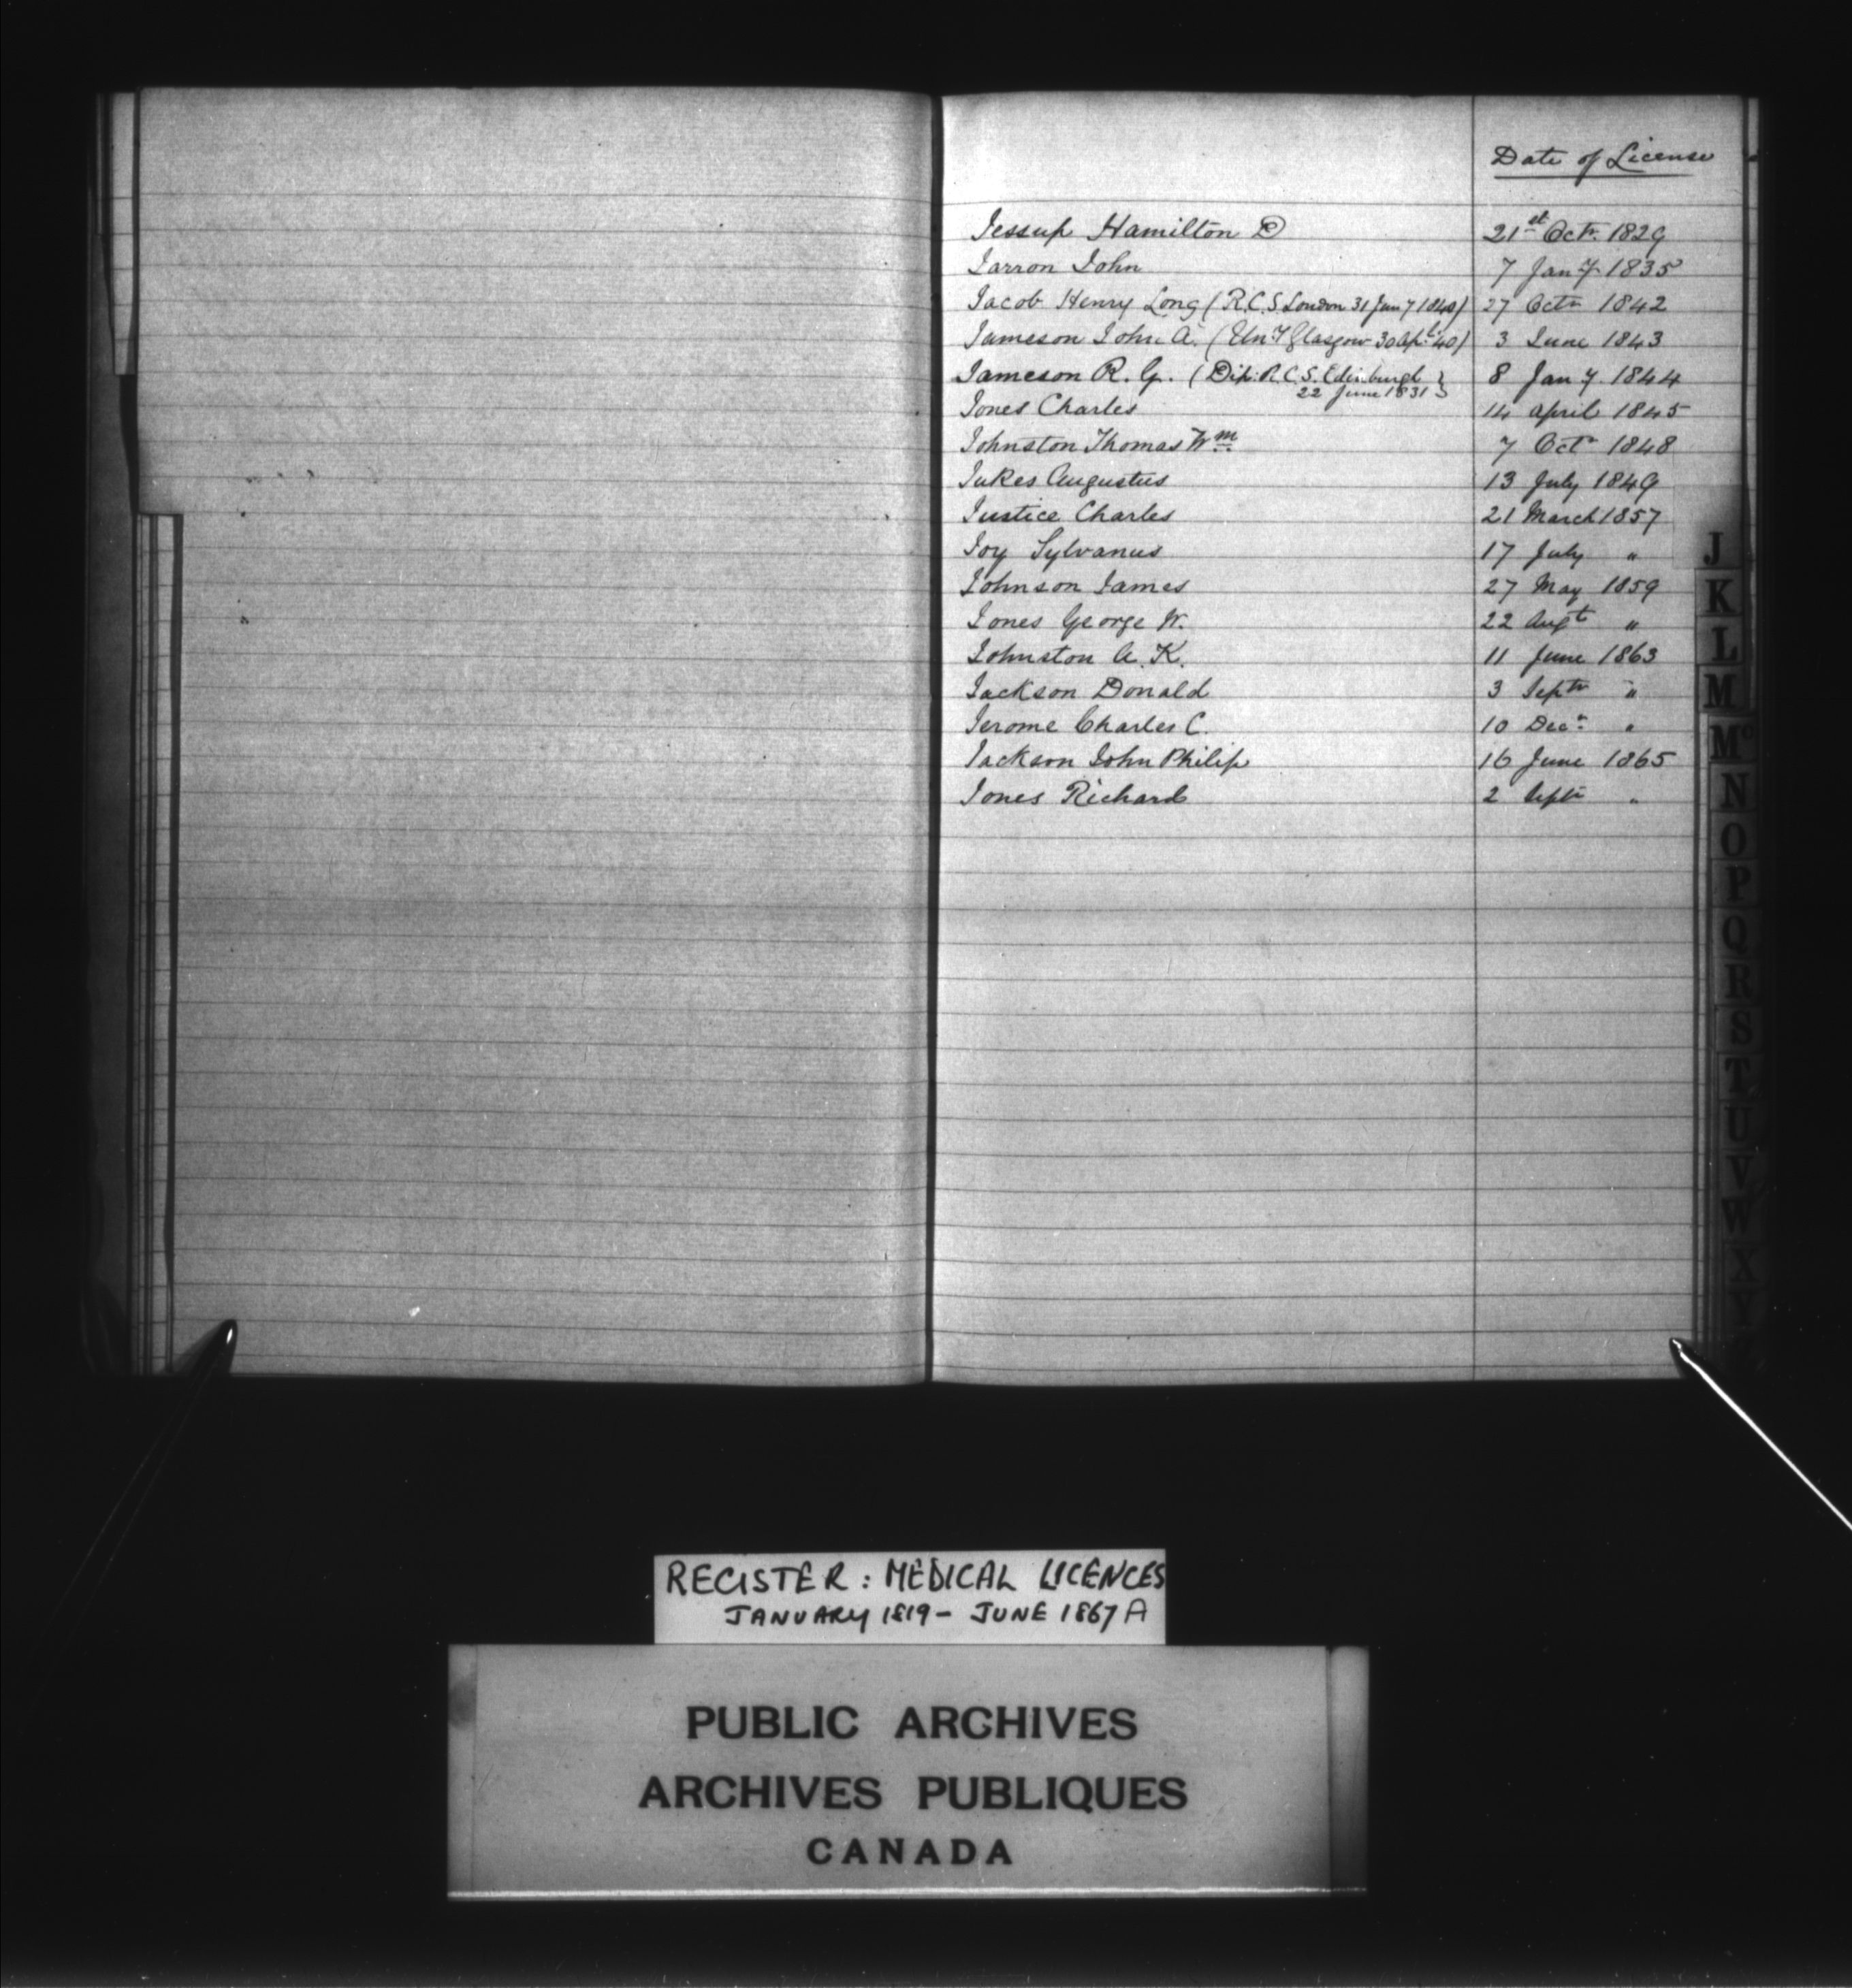 Date of License
Jessup Hamilton D 21st Octr. 1829
Jarron John 7 Jany 1835
Jacob Henry Long (R.C.S. London 31 Jany 1840) 27 Octr 1842
Jameson John A. (Uny Glasgow 30 Apl. 40) 3 June 1843
Jameson R. G. (Dip: R.C.S. Edinburgh 8 Jany. 1844
22 June 1831
Jones Charles 14 April 1845
Johnston Thomas Wm 7 Octr 1848
Jukes Augustus 13 July 1849
Justice Charles 21 March 1857
Joy Sylvanus 17 July "
Johnson James 27 May 1859
Jones George W. 22 Augt "
Johnston A. K. 11 June 1863
Jackson Donald 3 Septr "
Jerome Charles C. 10 Decr "
Jackson John Philip 16 June 1865
Jones Richard 2 Septr "
J
K
L
M
Mc
N
O
P
Q
R
S
T
U
V
W
X
Y
REGISTER: MEDICAL LICENCES
JANUARY 1819 - JUNE 1867 A
PUBLIC ARCHIVES
ARCHIVES PUBLIQUES
CANADA